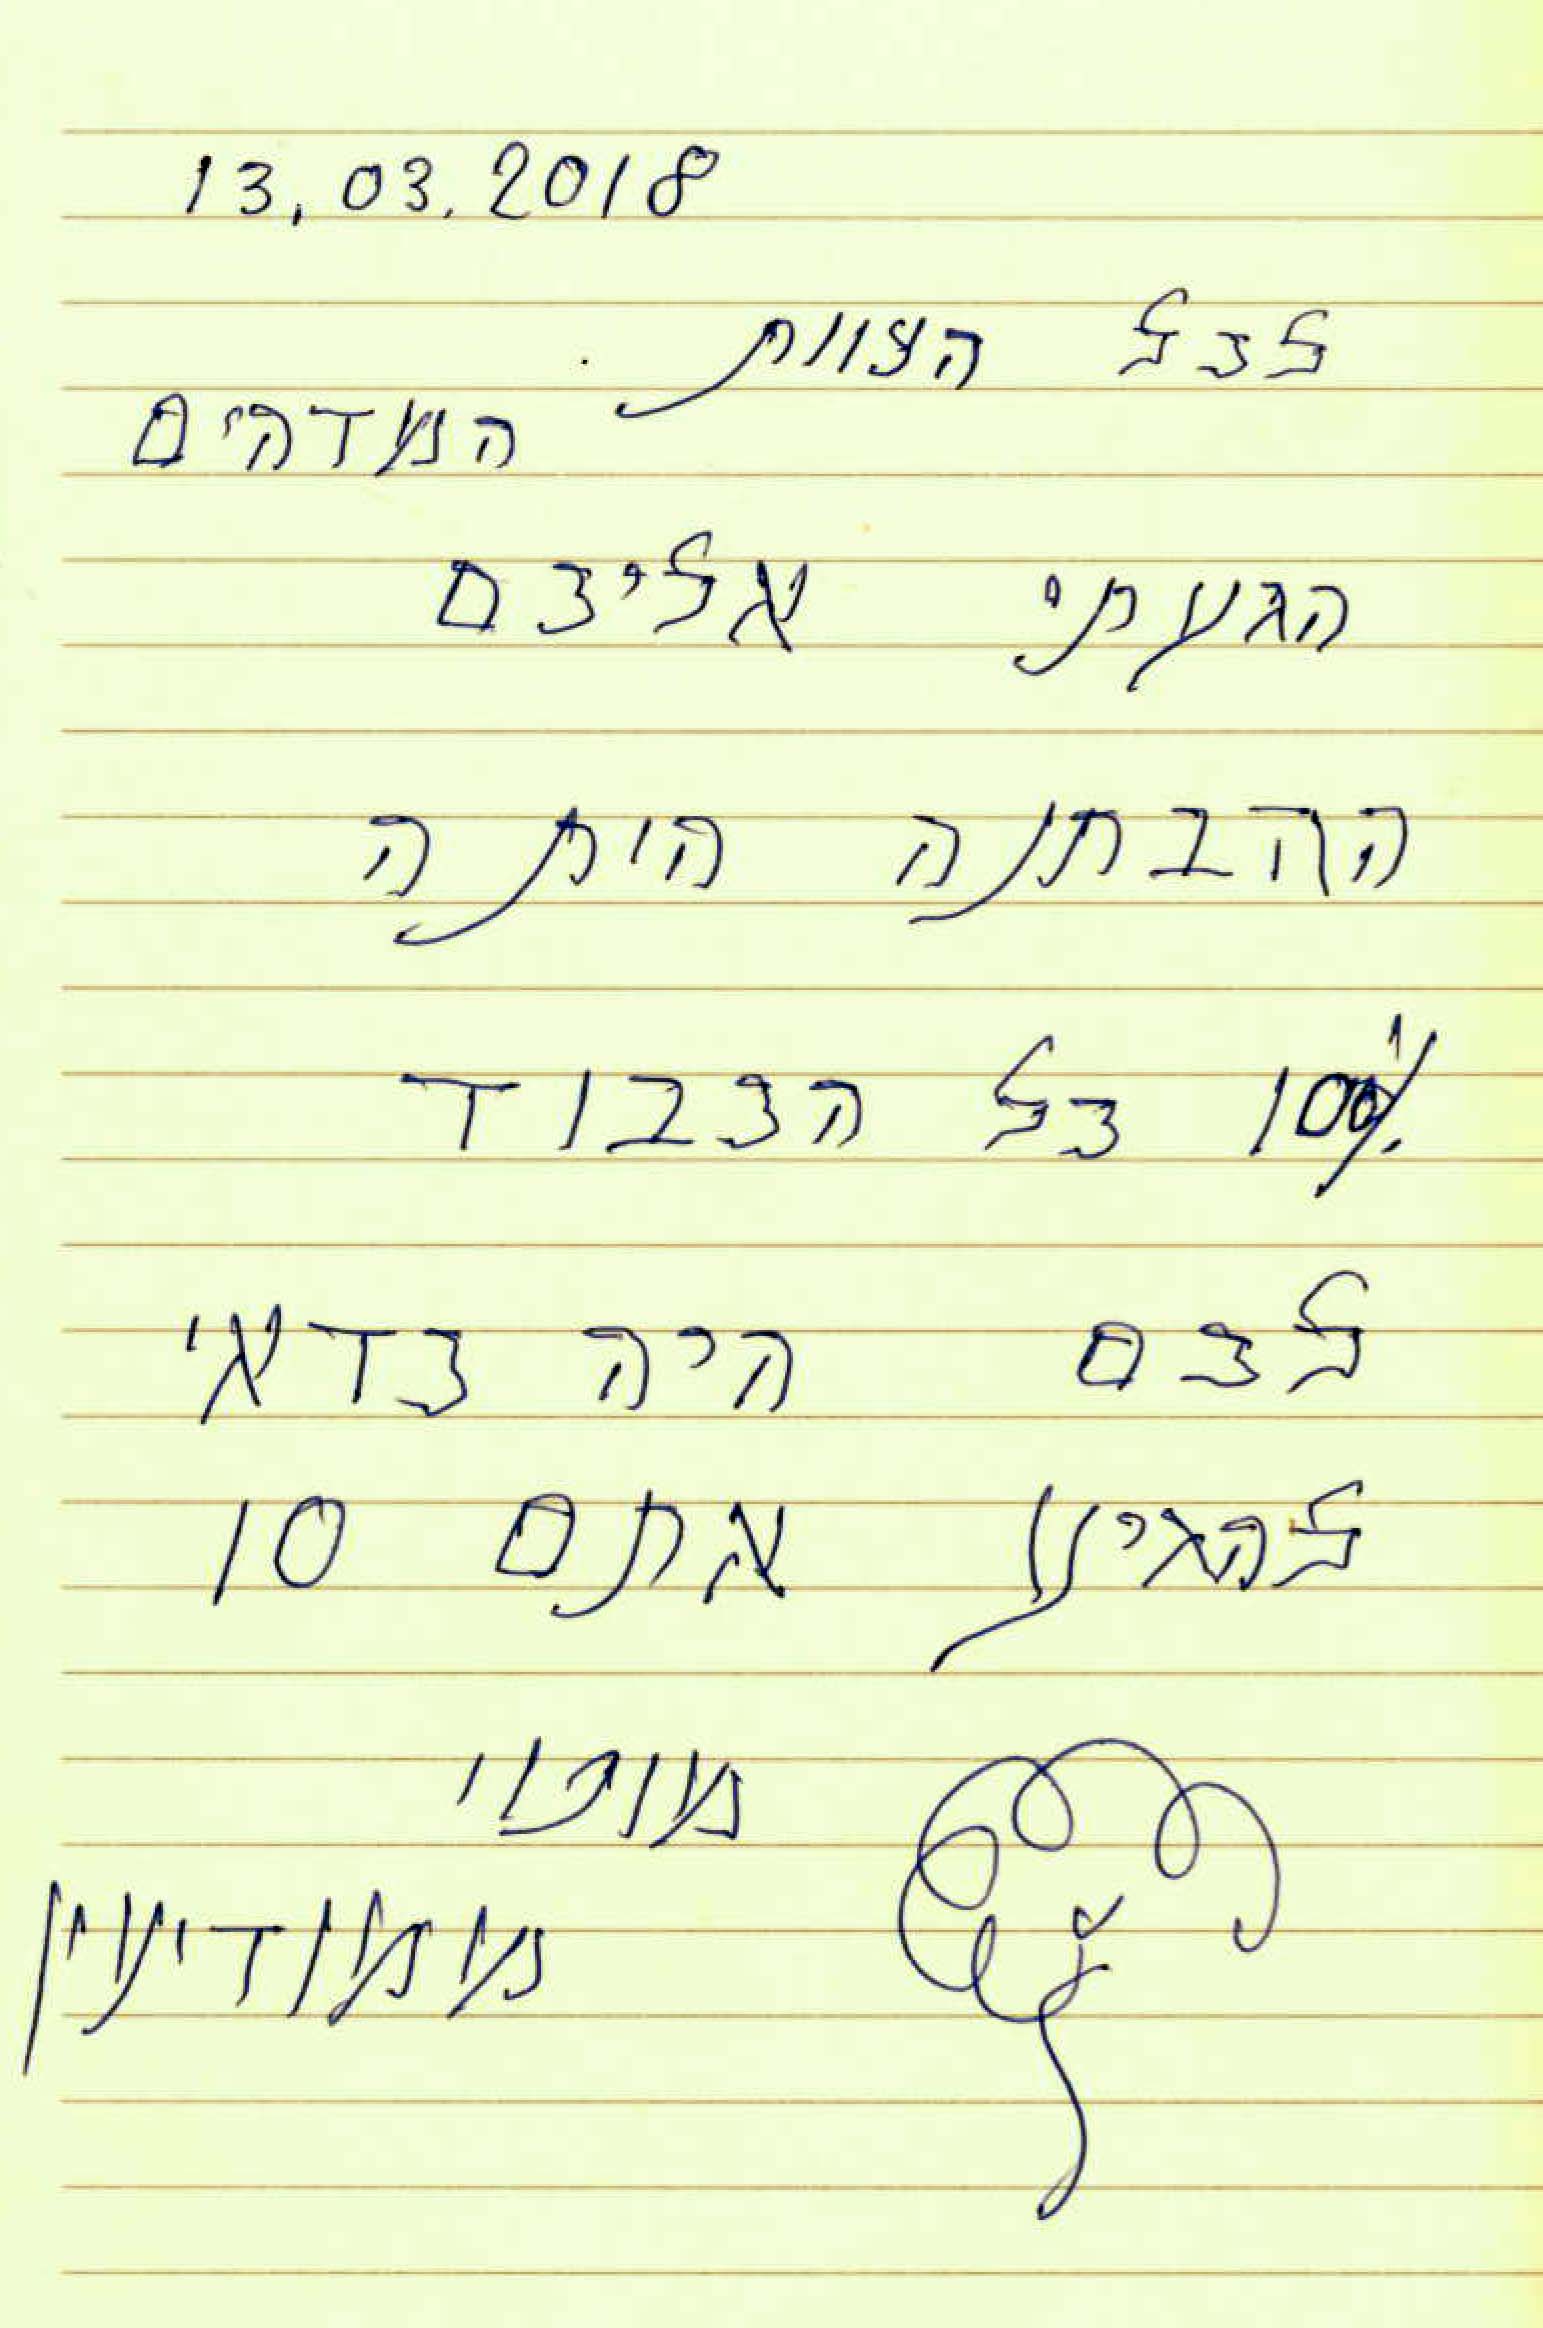 13.03.2018
לכל הצוות
המדהים
הגעתי אליכם
ההבתנה היתה
100% כל הכבוד
לכם היה כדאי
להגיע אתם 10
מוטי
ממודיעין